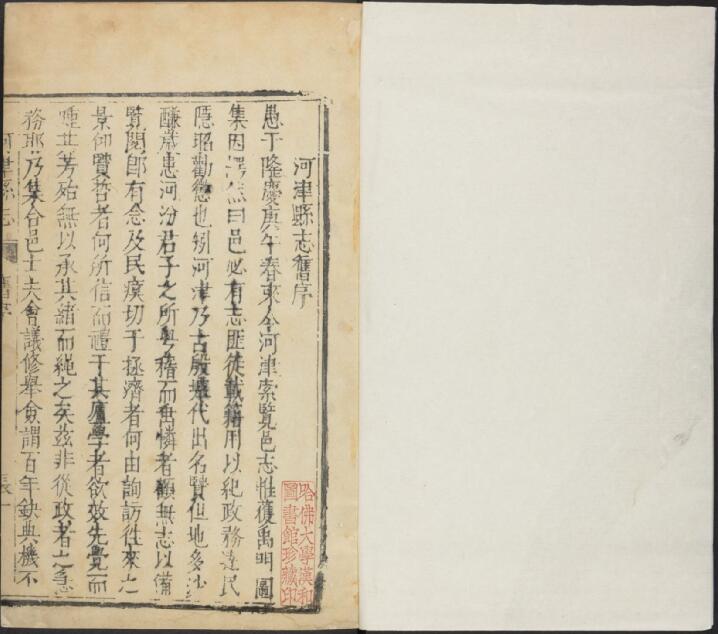 河津縣志舊序
愚于隆慶庚午春來令河津索覽邑志惟獲禹明圖
集因愕然曰邑必有志匪徒載籍用以紀政務達民
隱昭勸懲也矧河津乃古殷墟代出名賢但地多沙
鹻歲患河汾君子之所興稽而 憐者顧無志以備
覽閱即有念及民瘼切于拯濟者何由詢訪往來之
景仰賢哲者何所信而禮于其廬學者欲效先覺而
踵其芳殆無以承其緒而繩之矣茲非從政者之急
務耶乃集合邑士夫會議修舉僉謂百年缺典機不
河津縣志 舊序
哈佛大學漢和
圖書館珍藏印